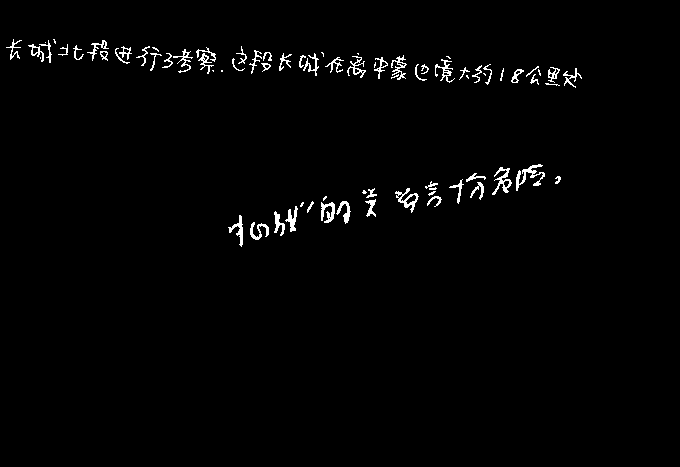 长城北段进行了考察.这段长城在离中蒙边境大约18公里处
战"的关 言十分危险。